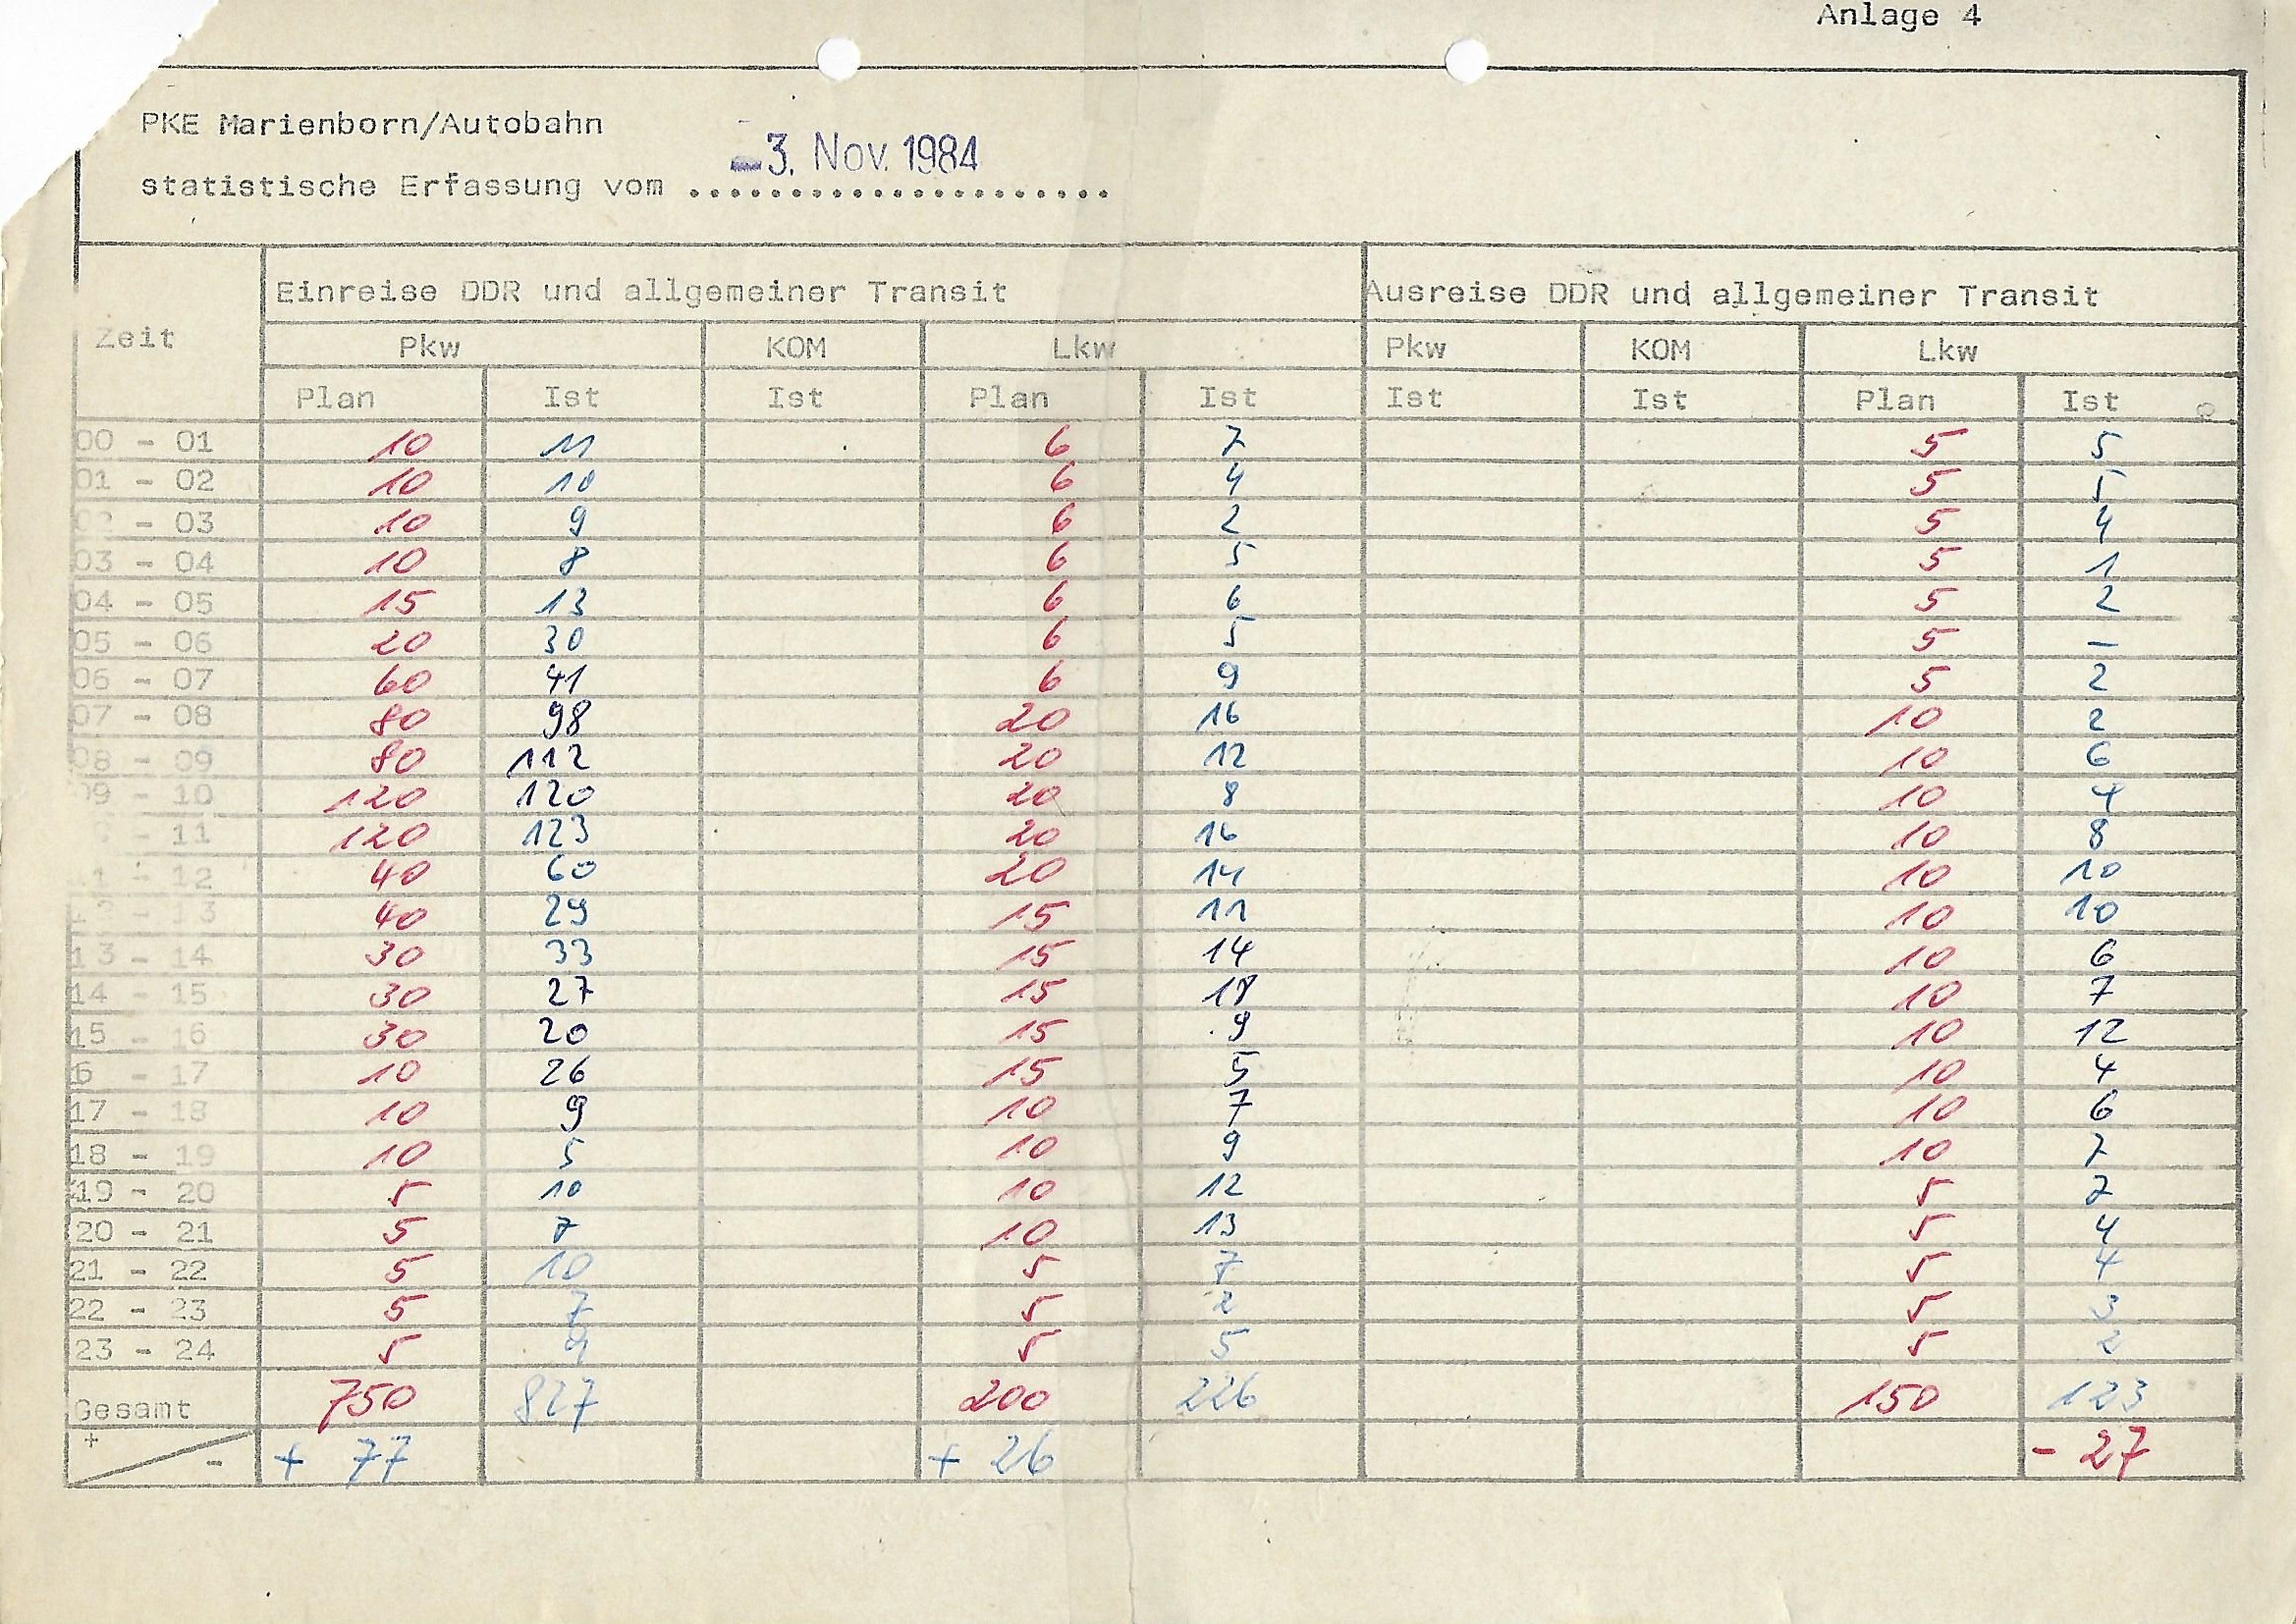 Anlage 4
PKE Marienborn/Autobahn
-3. Nov. 1984
statistische Erfassung vom .....................
Zeit Einreise DDR und allgemeiner Transit Ausreise DDR und allgemeiner Transit
Pkw KOM Lkw Pkw KOM Lkw
Plan Ist Ist Plan Ist Ist Ist Plan Ist
00 - 01 10 11 6 7 5 5
01 - 02 10 10 6 4 5 5
02 - 03 10 9 6 2 5 4
03 - 04 10 8 6 5 5 1
04 - 05 15 13 6 6 5 2
05 - 06 20 30 6 5 5 –
06 - 07 60 41 6 9 5 2
07 - 08 80 98 20 16 10 2
08 - 09 80 112 20 12 10 6
09 - 10 120 120 20 8 10 4
- 11 120 123 20 16 10 8
1 - 12 40 60 20 14 10 10
12 - 13 40 29 15 11 10 10
13 - 14 30 33 15 14 10 6
14 - 15 30 27 15 18 10 7
15 - 16 30 20 15 9 10 12
6 - 17 10 26 15 5 10 4
17 - 18 10 9 10 7 10 6
18 - 19 10 5 10 9 10 7
19 - 20 5 10 10 12 5 7
20 - 21 5 7 10 13 5 4
21 - 22 5 10 5 7 5 4
22 - 23 5 7 5 2 5 3
23 - 24 5 9 5 5 5 2
Gesamt 750 827 200 226 150 123
+ - + 77 + 26 - 27